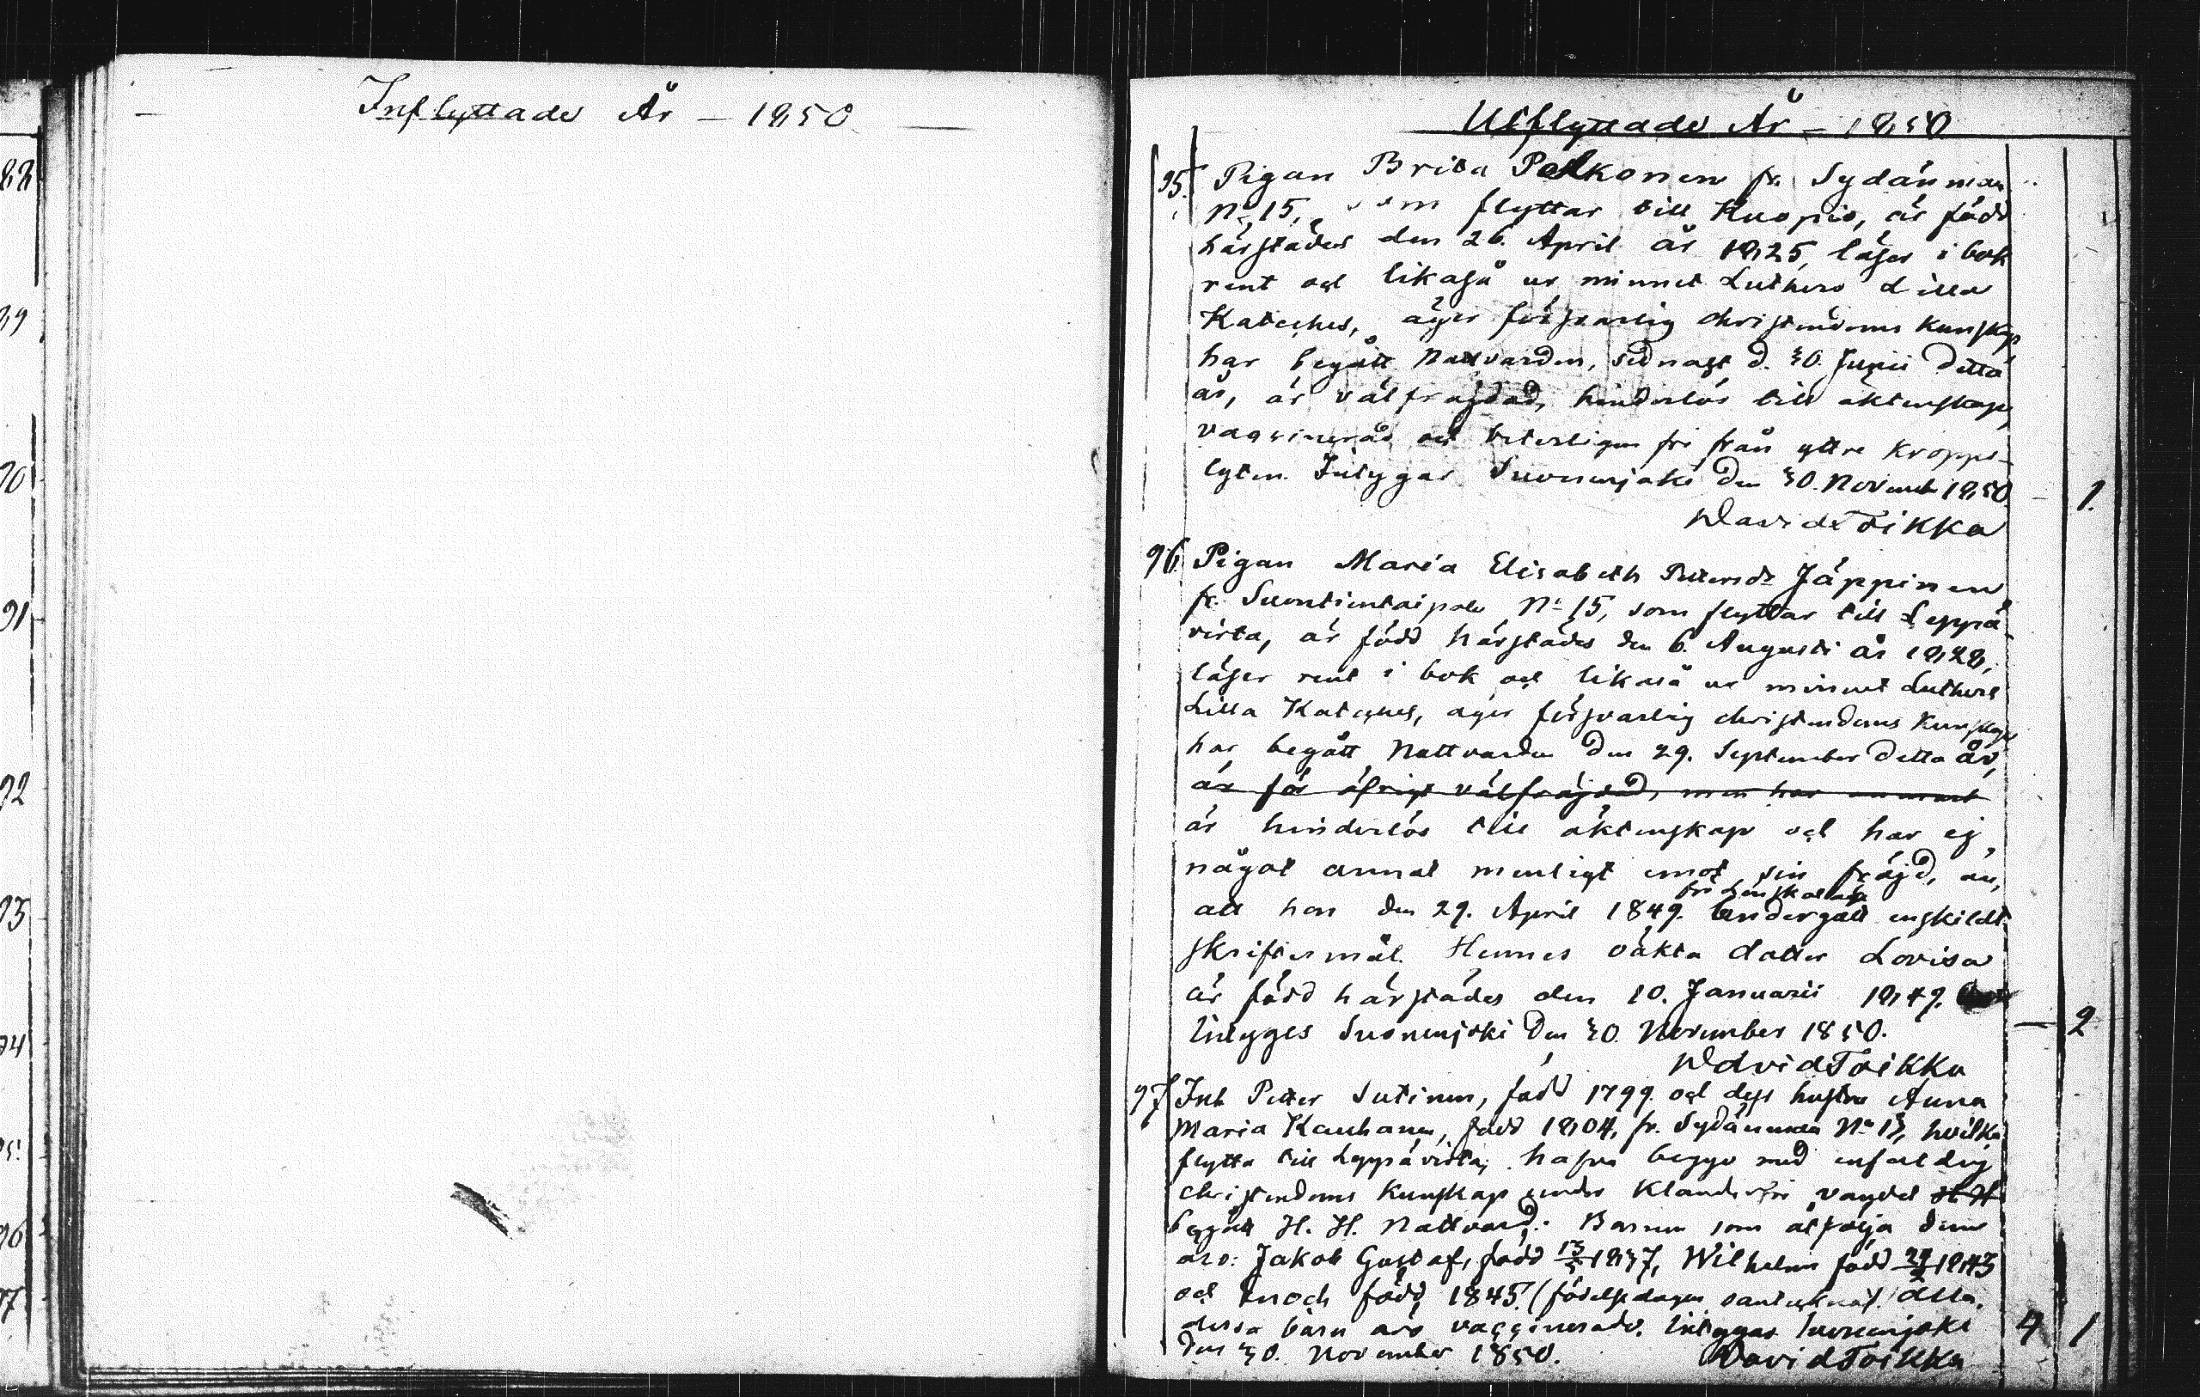 Inflyttade År – 1850
88
89
90
91
92
93
94
95.
96
97
Utflyttade År – 1850
95. Pigan Brita Pelkonen fr. Sydänmaa
No 15, som flyttar till Kuopio, är född
härstädes den 26. April år 1825, läser i bok
rent och likaså ur minnet Luthers Lilla
Kateches, äger försvarlig christendoms kunskap
har begått Nattvarden, sednast d. 30. Junii detta
år, är välfrägdad, hinderlös till äktenskap,
vaccinerad och veterligen fri från yttre kropps-
lyten. Intygar Suonenjoki den 30. Novemb 1850. – 1.
David Toikka
96. Pigan Maria Elisabeth Pettersdr Jäppinen
fr. Suontientaipale No 15, som flyttar till Leppä-
virta, är född härstädes den 6. Augusti år 1828,
läser rent i bok och likaså ur minnet Luthers
Lilla Kateches, äger försvarlig christendoms kunskap
har begått Nattvarden den 29. September detta år,
är för öfrigt välfräjdad, men har
är hinderlös till äktenskap och har ej
något annat menligt emot sin fräjd, än,
att hon den 29. April 1849. undergått enskildt
skriftermål. Hennes oäkta dotter Lovisa
är född härstädes den 10. Januarii 1849.
Intyges Suonenjoki den 30. November 1850. – 2
David Toikka
97 Inh Petter Sutinen, född 1799. och dess hustru Anna
Maria Kauhanen, född 1804, fr. Sydänmaa No 15, hvilka
flytta till Leppävirta, hafva begge med enfaldig
christendoms kunskap under klanderfri vandel
begått H. H. Nattvard. Barnen som åtfölja dem
äro: Jakob Gustaf, född 13/5 1837, Wilhelm född 29/2 1843
och Enoch född 1845. (födelsedagen
dessa barn äro vaccinerade. Intygar Suonenjoki 4 1
den 30. November 1850. David Toikka